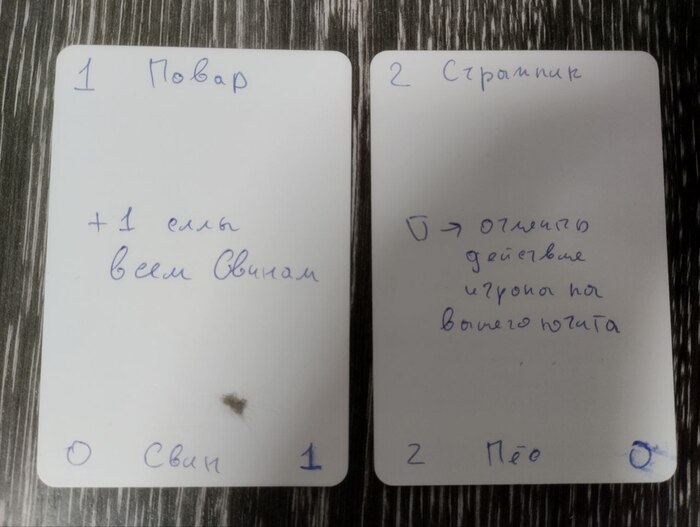 1 Повар
+1 силы
всем Свинам
0 Свин 1
2 Странник
→ отменить
действие
игрока на
вашего юнита
2 Пёс 0